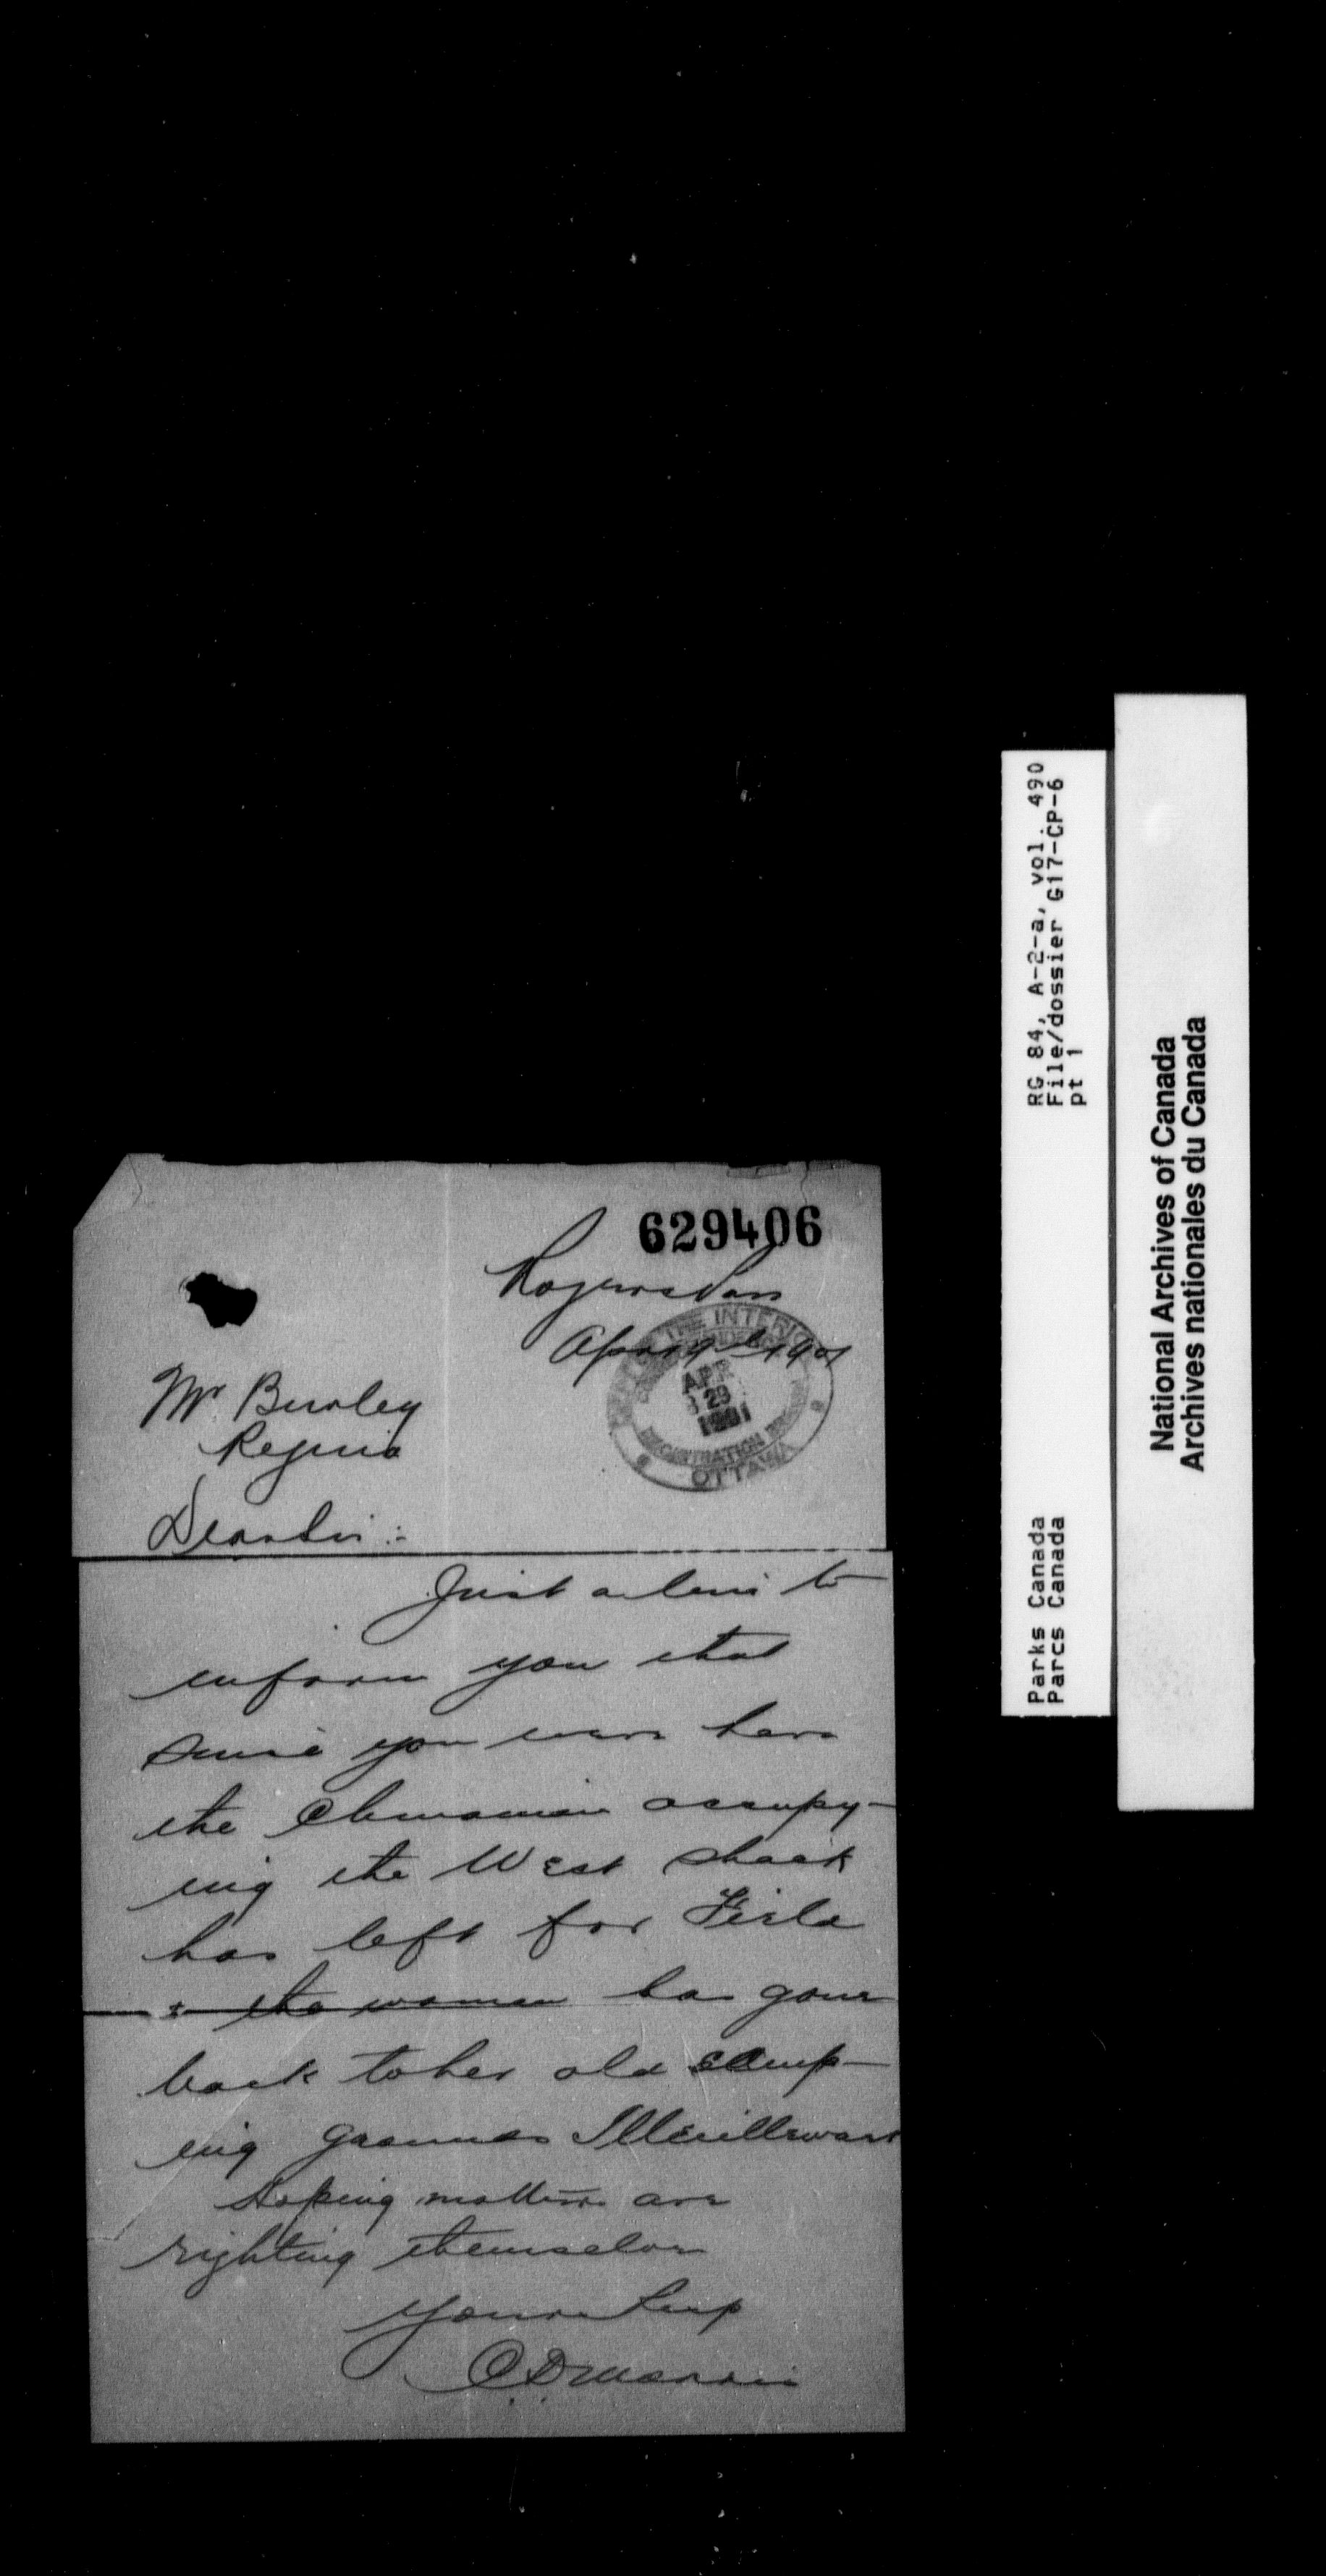 629406
Rogers Pass
Apr 19th 1901
DEPT OF THE INTERIOR
APR
29
1901
REGISTRATION BRANCH
OTTAWA
Mr Burley
Regina
Dear Sir :-
Just a line to
inform you that
since you were here
the Chinaman occupy-
ing the West shack
has left for Field
& the woman has gone
back to her old camp-
ing grounds Illecillewaet
Hoping matters are
righting themselves
Yours Resp
RG 84, A-2-a, vol. 490
File/dossier G17-CP-6
pt 1
Parks Canada
Parcs Canada
National Archives of Canada
Archives nationales du Canada